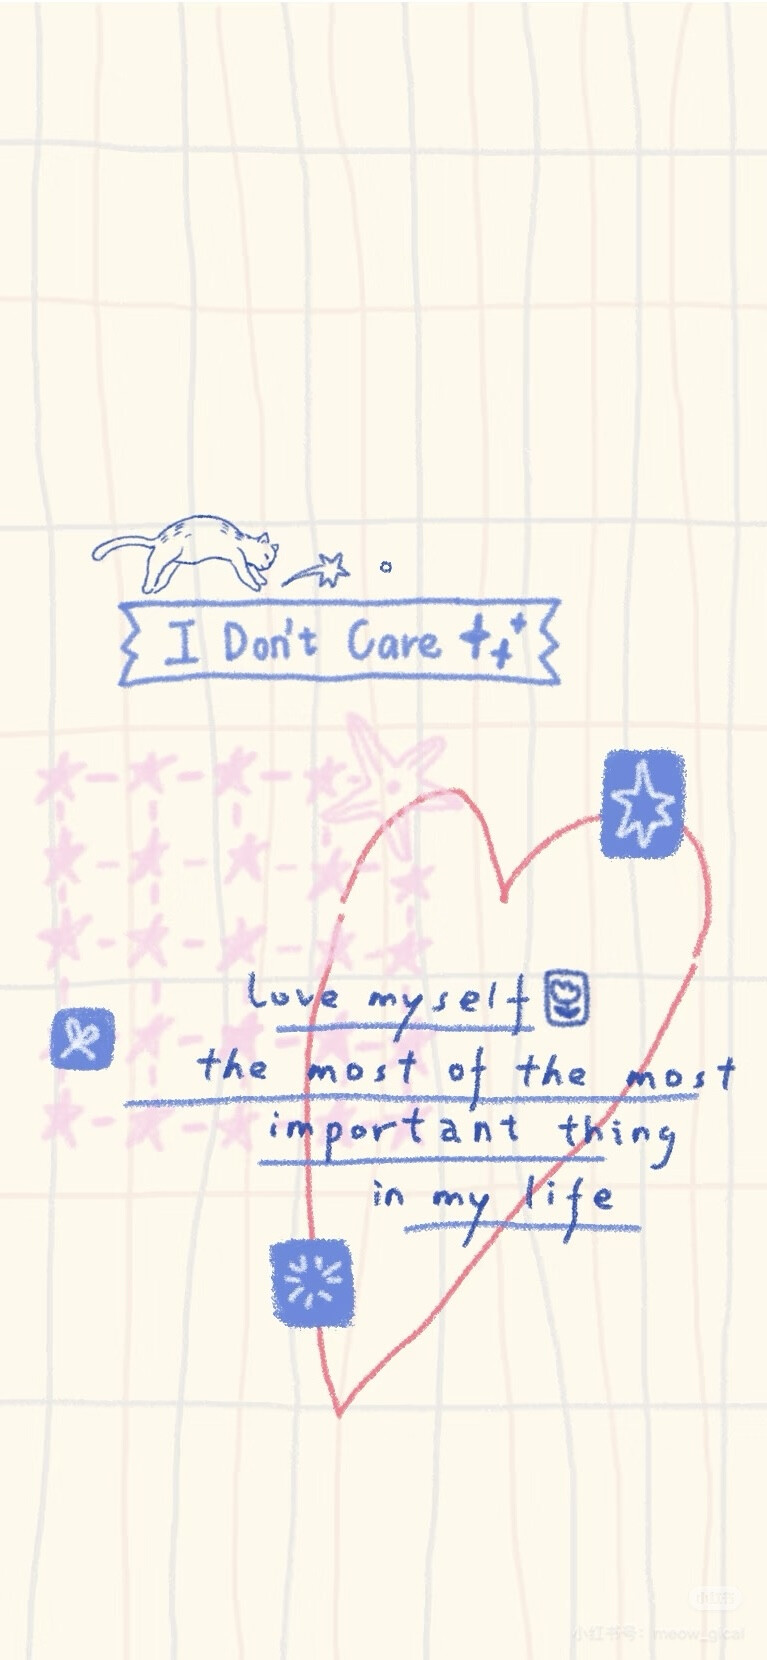 I Don't Care
love myself
the most of the most
important thing
in my life
小红书号：meow_gical